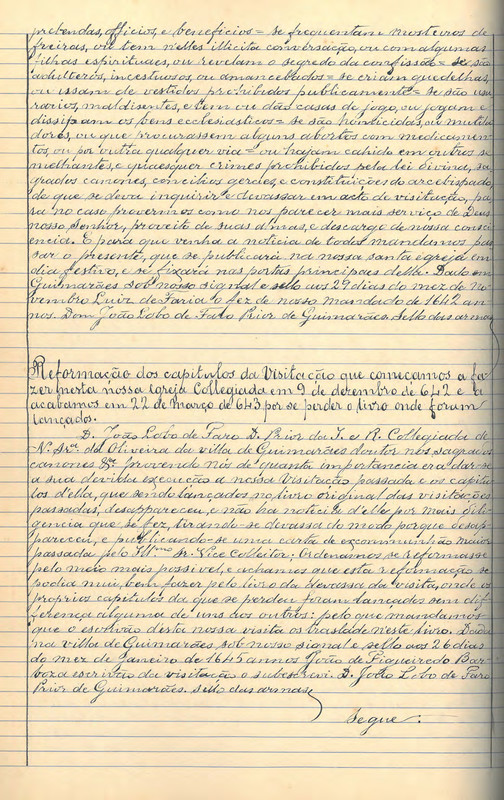 prebendas, officios, e beneficios = se frequentam mosteiros de
freiras, ou tem nelles illicita conversação, ou com algumas
filhas espirituaes, ou revelam o segredo da confissão = se são
adulteros, incestuosos, ou amancebados = se criam guedelhas,
ou usam de vestidos prohibidos publicamente = se são usu
rarios, maldisentes, e tem ou dão casas de jogo, ou jogam e
dissipam os bens ecclesiasticos = se são homicidas, ou mutila
dores, ou que procurassem alguns abortos com medicamen
tos, ou por outra qualquer via = ou hajam cahido em outros se
melhantes, e quaesquer crimes prohibidos pela lei Divina, sa
grados canones, concilios geraes, e constituições do arcebispado,
de que se deva inquirir e devassar em acto de visitação, pa
ra no caso provermos como nos parecer mais serviço de Deus
nosso Senhor, proveito de suas almas, e descargo de nossa consci
encia. E para que venha a noticia de todos mandamos pas
sar o presente, que se publicará na nossa santa egreja em
dia festivo, e se fixará nas portas principaes della. Dado em
Guimarães sob nosso signal e sello aos 29 dias do mez de No
vembro Luiz de Faria o fez de nosso mandado de 1642 an
nos. Dom João Lobo de Faro Prior de Guimarães. Sello das armas
Reformação dos capitulos da Visitação que começamos a fa
zer nesta nossa Igreja Collegiada em 9 de dezembro de 642 e a
acabamos em 22 de março de 643 por se perder o livro onde foram
lançados.
D. João Lobo de Faro D. Prior da I. e R. Collegiada de
N. Srª. da Oliveira da villa de Guimarães doutor nos sagrados
canones &ª. provendo nós de quanta importancia era dar-se
a sua devida execução a nossa Visitação passada e os capitu
los d'ella, que sendo lançados no livro original das visitações
passadas, desappareceu, e não ha noticia d'elle por mais dili
gencia que se fez, tirando-se devassa do modo porque desap
pareceu, e publicando-se uma carta de excommunhão maior
passada pelo Illmo Sr. Vice Colleitor: Ordenamos se reformasse
pelo maio mais possivel, e achamos que esta reformação se
podia mui bem fazer pelo livro da devassa da visita, onde os
proprios capitulos da que se perdeu foram lançados sem dif
ferença alguma de uns aos outros: pelo que mandamos
que o escrivão desta nossa visita os traslade neste livro. Dada
na villa de Guimarães sob nosso signal e sello aos 26 dias
do mez de Janeiro de 1645 annos João de Figueiredo Bar
boza escrivão da visitação o subescrevi. D. João Lobo de Faro
Prior de Guimarães. Sello das armas
Segue: